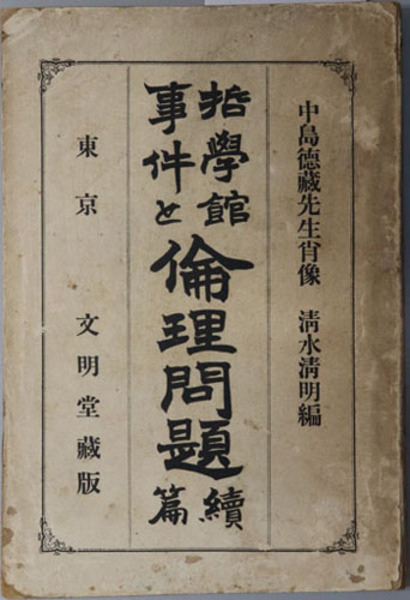 中島德藏先生肖像 淸水淸明編
哲學館事件と倫理問題續篇
東京 文明堂藏版